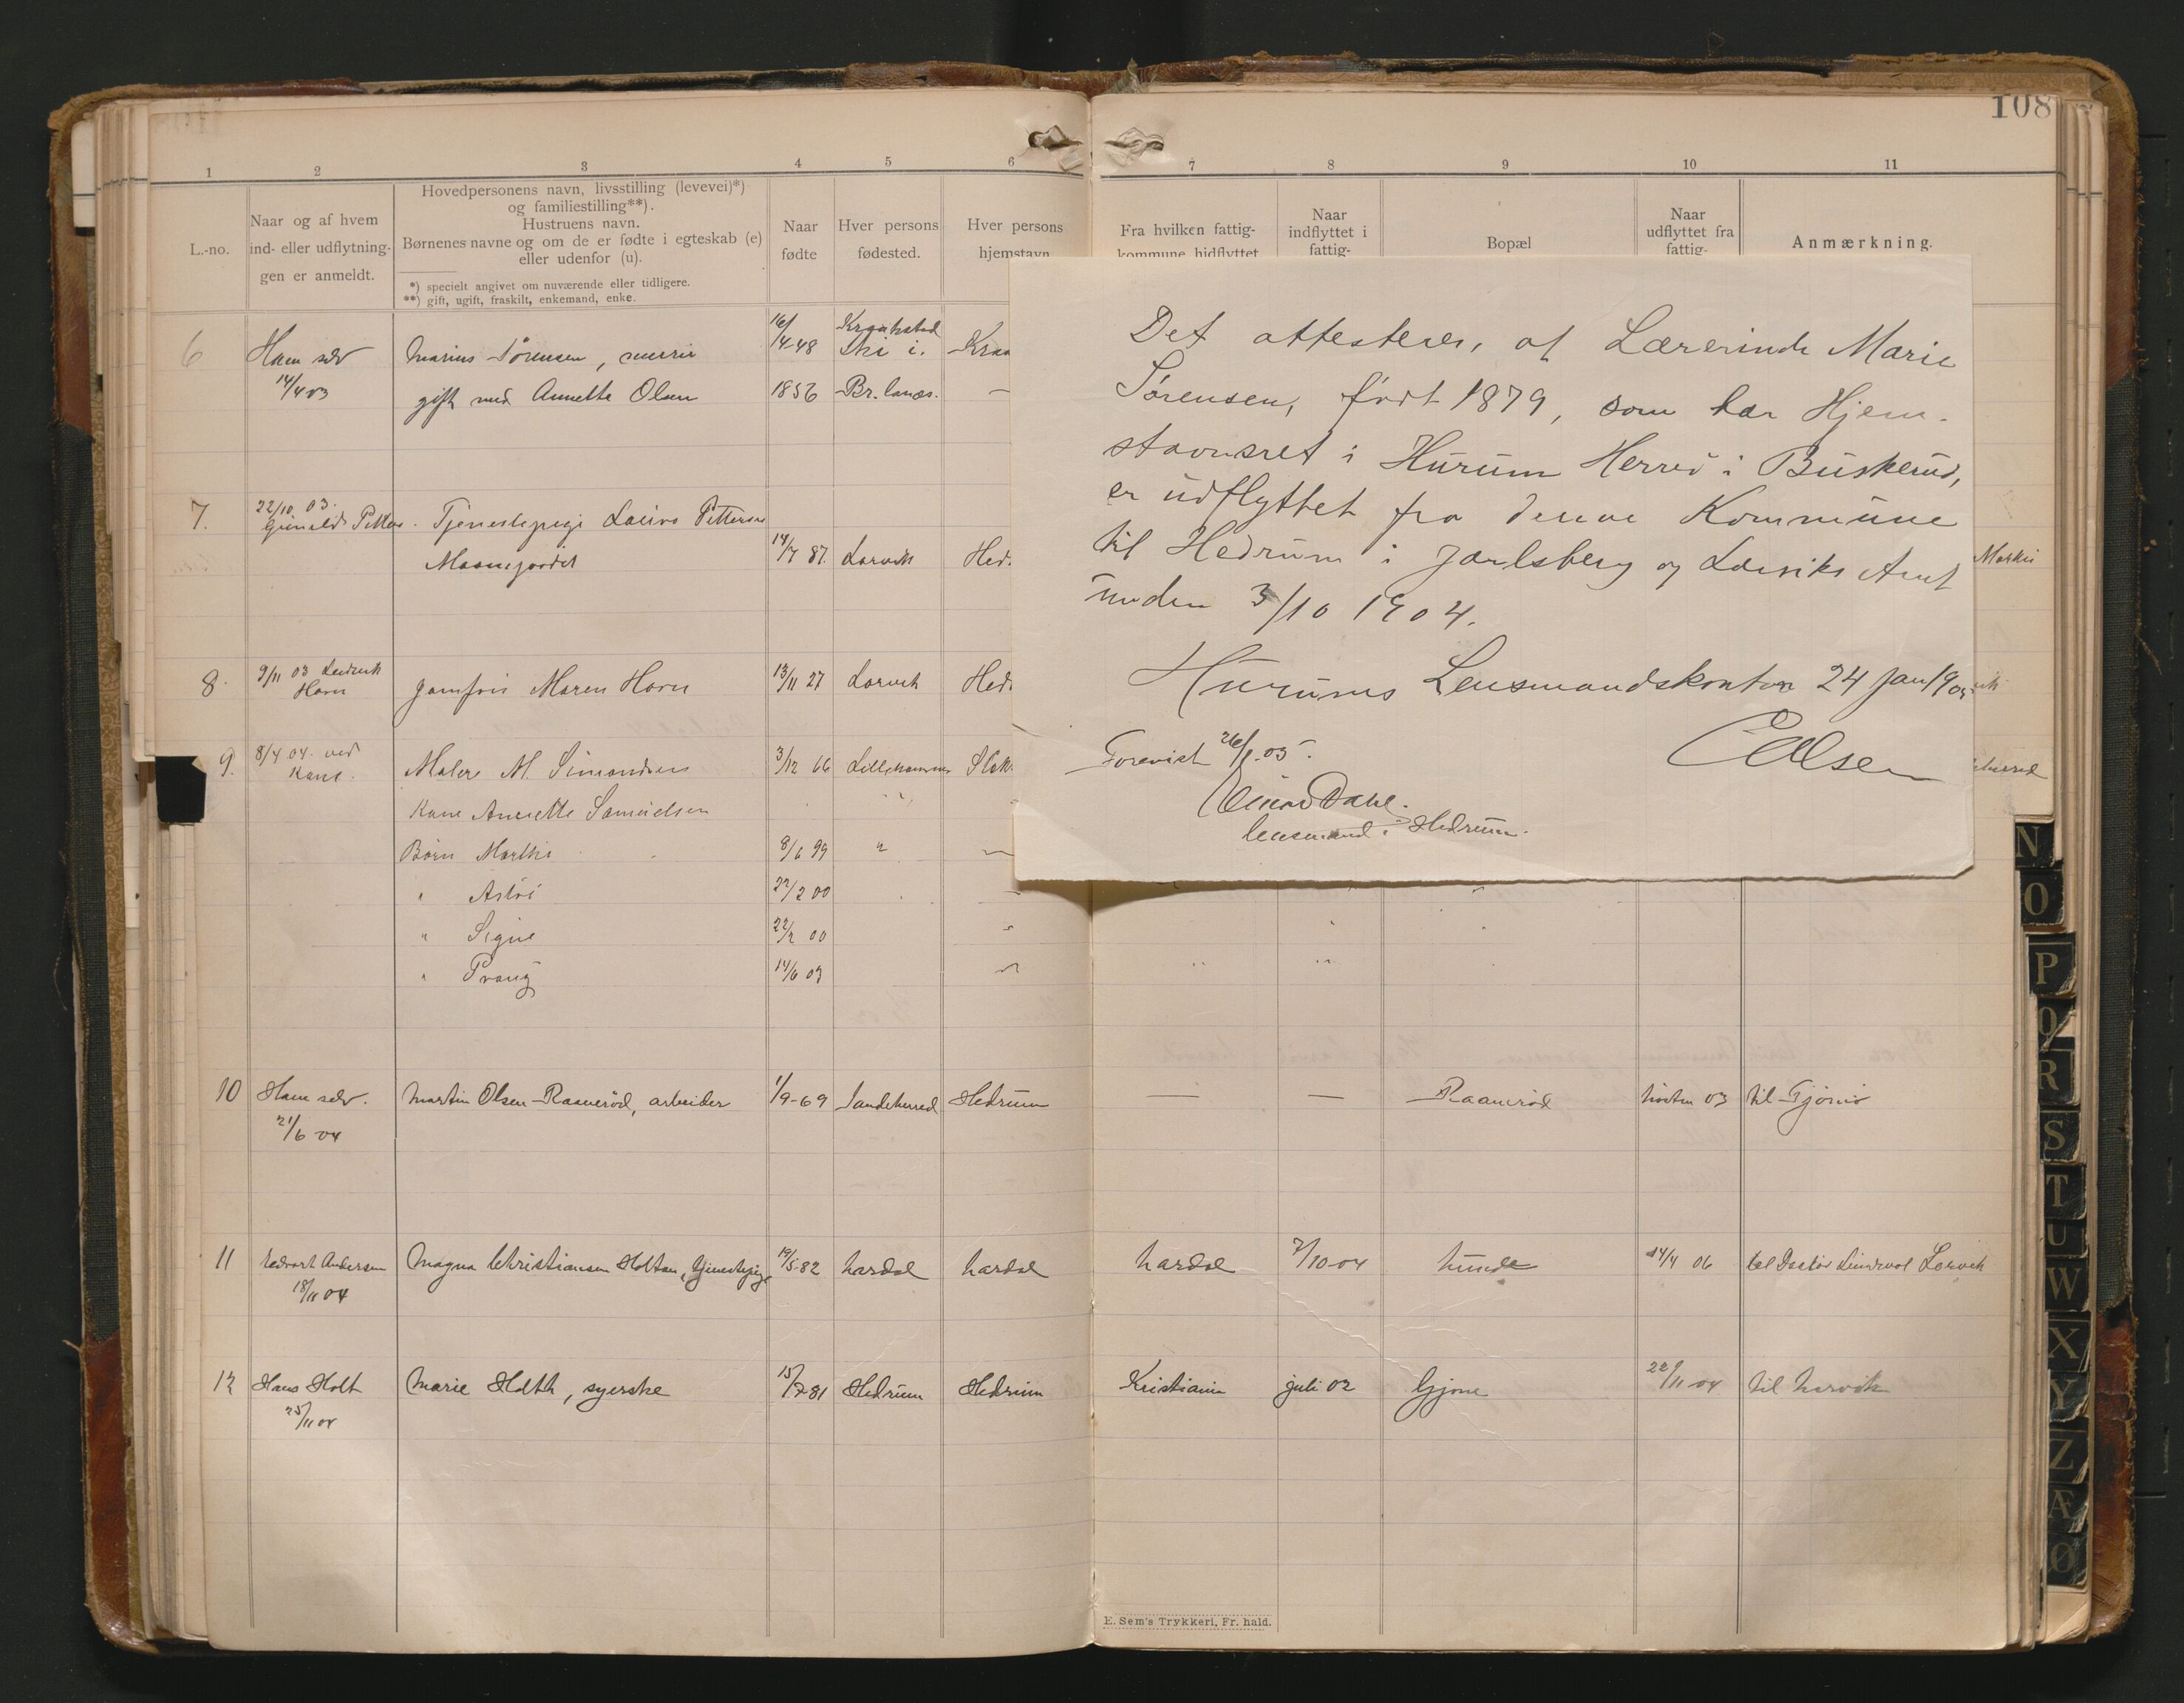 108
1 2 3 4 5 6 7 8 9 10 11
L.-no.
Naar og af hvem
ind- eller udflytnin-
gen er anmeldt.
Hovedpersonens navn, livsstilling (levevei)*)
og familiestilling**).
Hustruens navn.
Børnenes navne og om de er fødte i egteskab (e)
eller udenfor (u).
*) specielt angivet om nuværende eller tidligere.
**) gift, ugift, fraskilt, enkemand, enke.
Naar
fødte
Hver persons
fødested.
Hver persons
hjemstavn
Fra hvilken fattig-
kommune hidflyttet
Naar
indflyttet i
fattig-
Bopæl
Naar
udflyttet fra
fattig-
Anmærkning.
6 Ham selv Marius Sørensen, murer 16/4-48 Kraakstad
Ski i. Kraa
14/4 03 gift med Annette Olsen 1856 Br.lanæs. —
7. 22/10 03.
Tjenestepige Laura Pettersen
14/7 87. Larvik Hed
8. 9/11 03
Horn Jomfru Maren Horn 13/11 27 Larvik Hed
9. 8/4 04. ved
Kone. Maler M. Simonsen 3/12 66 Lillehammer
Kone Annette Samuelsen
Børn Martha 8/6 99 "
" Astri 22/2 00
" Signe 22/2 00
" 14/6 03
10 Ham selv. Martin Olsen Raanerød, arbeider 1/9-69 Sandeherred Hedrum — — Raanerød høsten 03 til Tjømø
21/6 04
11 Edvart Andersen Magna Christiansen Holtan, tjenestepige 19/5-82 Lardal Lardal Lardal 7/10-04 14/4 06 Larvik
18/11 04
12 Hans Holt Marie Holth, syerske 15/7-81 Hedrum Hedrum Kristiania juli 02 Gjone 22/11-04 til Larvik
25/11 04
Det attesteres, at Lærerinde Marie
Sørensen, født 1879, som har Hjem-
stavnsret i Hurum Herred i Buskerud,
er udflyttet fra denne Kommune
til Hedrum i Jarlsberg og Larviks Amt
under 3/10 1904.
Hurums Lensmandskontor 24 Jan 1905
Forevist 26/1.05.
Einar Dahl.
lensmand i Hedrum.
E. Sem's Trykkeri, Fr. hald.
N
O
P
Q
R
S
T
U
W
X
Y
Z
Æ
Ø